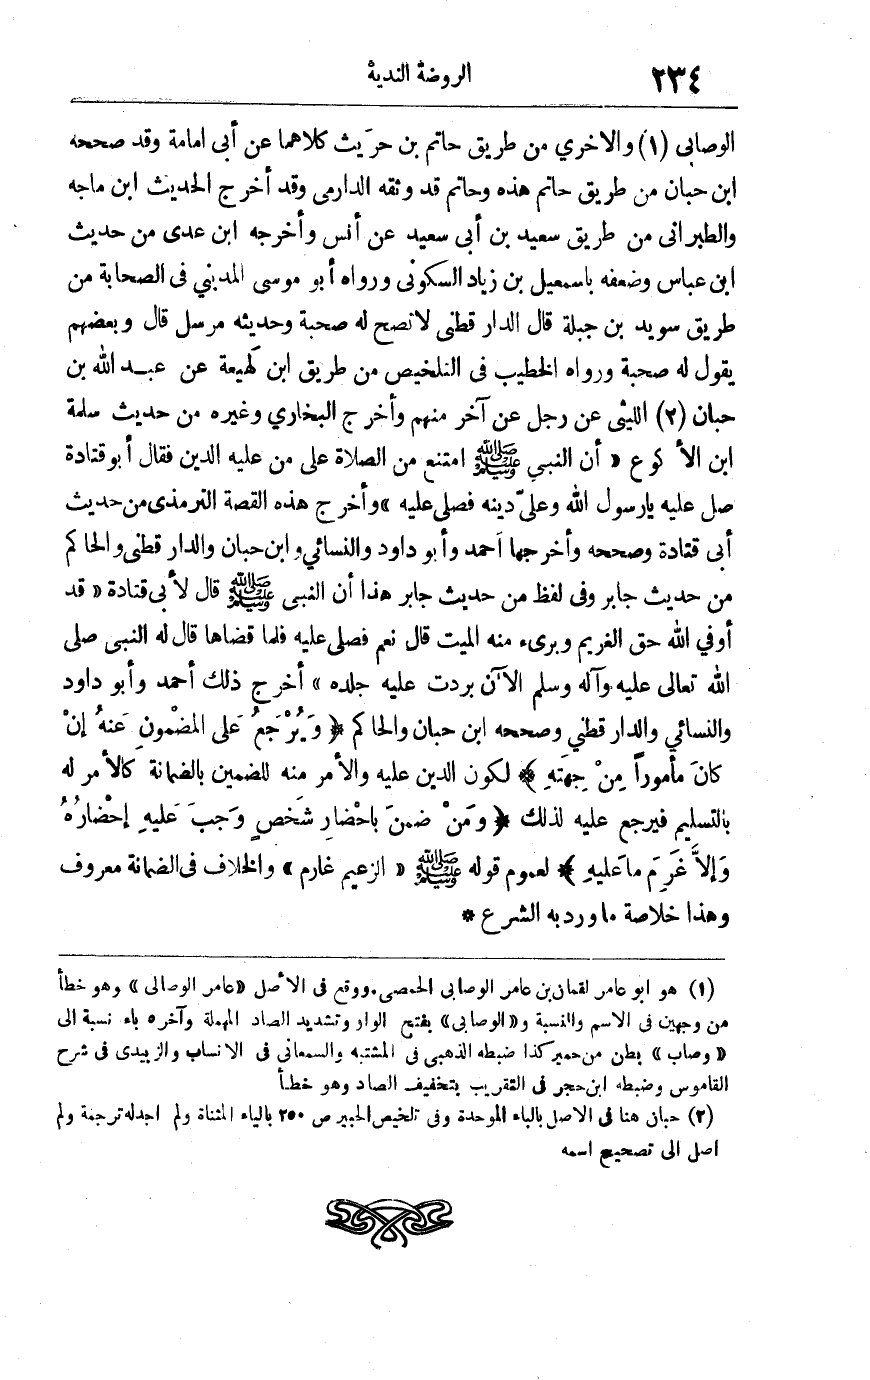 ٢٣٤ الروضة الندية
الوصابي (١) والاخري من طريق حاتم بن حريث كلاهما عن أبى امامة وقد صححه
ابن حبان من طريق حاتم هذه وحاتم قد وثقه الدارمى وقد أخرج الحديث ابن ماجه
والطبرانى من طريق سعيد بن أبى سعيد عن أنس وأخرجه ابن عدى من حديث
ابن عباس وضعفه باسمعيل بن زياد السكونى ورواه أبو موسى المديني فى الصحابة من
طريق سويد بن جبلة قال الدار قطنى لاتصح له صحبة وحديثه مرسل قال وبعضهم
يقول له صحبة ورواه الخطيب فى التلخيص من طريق ابن لهيعة عن عبد الله بن
حبان (٢) الليثى عن رجل عن آخر منهم وأخرج البخاري وغيره من حديث سلمة
ابن الأكوع « أن النبي ﷺ امتنع من الصلاة على من عليه الدين فقال أبو قتادة
صل عليه يارسول الله وعليّ دينه فصلى عليه » وأخرج هذه القصة الترمذى من حديث
أبى قتادة وصححه وأخرجها أحمد وأبو داود والنسائي وابن حبان والدار قطنى والحاكم
من حديث جابر وفى لفظ من حديث جابر هذا أن النبى ﷺ قال لأبى قتادة « قد
أوفي الله حق الغريم وبرىء منه الميت قال نعم فصلى عليه فلما قضاها قال له النبى صلى
الله تعالى عليه وآله وسلم الآن بردت عليه جلده » أخرج ذلك أحمد وأبو داود
والنسائي والدار قطني وصححه ابن حبان والحاكم ﴿ وَيُرْجَعُ عَلى المضْمونِ عَنهُ إنْ
كانَ مأموراً مِنْ جِهَتهِ ﴾ لكون الدين عليه والأمر منه للضمين بالضمانة كالأمر له
بالتسليم فيرجع عليه لذلك ﴿ ومَنْ ضمنَ باحْضارِ شَخصٍ وجَبَ عَليهِ إحْضارُهُ
وَإلاَّ غَرِمَ ما عَليهِ ﴾ لعموم قوله ﷺ « الزعيم غارم » والخلاف فى الضمانة معروف
وهذا خلاصة ماورد به الشرع *
(١) هو ابو عامر لقمان بن عامر الوصابى الحمصى. ووقع فى الأصل «عامر الوصالى» وهو خطأ
من وجهين فى الاسم والنسبة و«الوصابى» بفتح الوار وتشديد الصاد المهملة وآخره باء نسبة الى
« وصاب » بطن من حمير كذا ضبطه الذهبى فى المشتبه والسمعانى فى الانساب والزبيدى فى شرح
القاموس وضبطه ابن حجر فى التقريب بتخفيف الصاد وهو خطأ
(٢) حبان هنا فى الاصل بالباء الموحدة وفى تلخيص الحبير ص ٢٥٠ بالياء المثناة ولم اجد له ترجمة ولم
اصل الى تصحيح اسمه